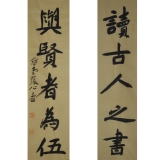 讀古人之書
與賢者為伍